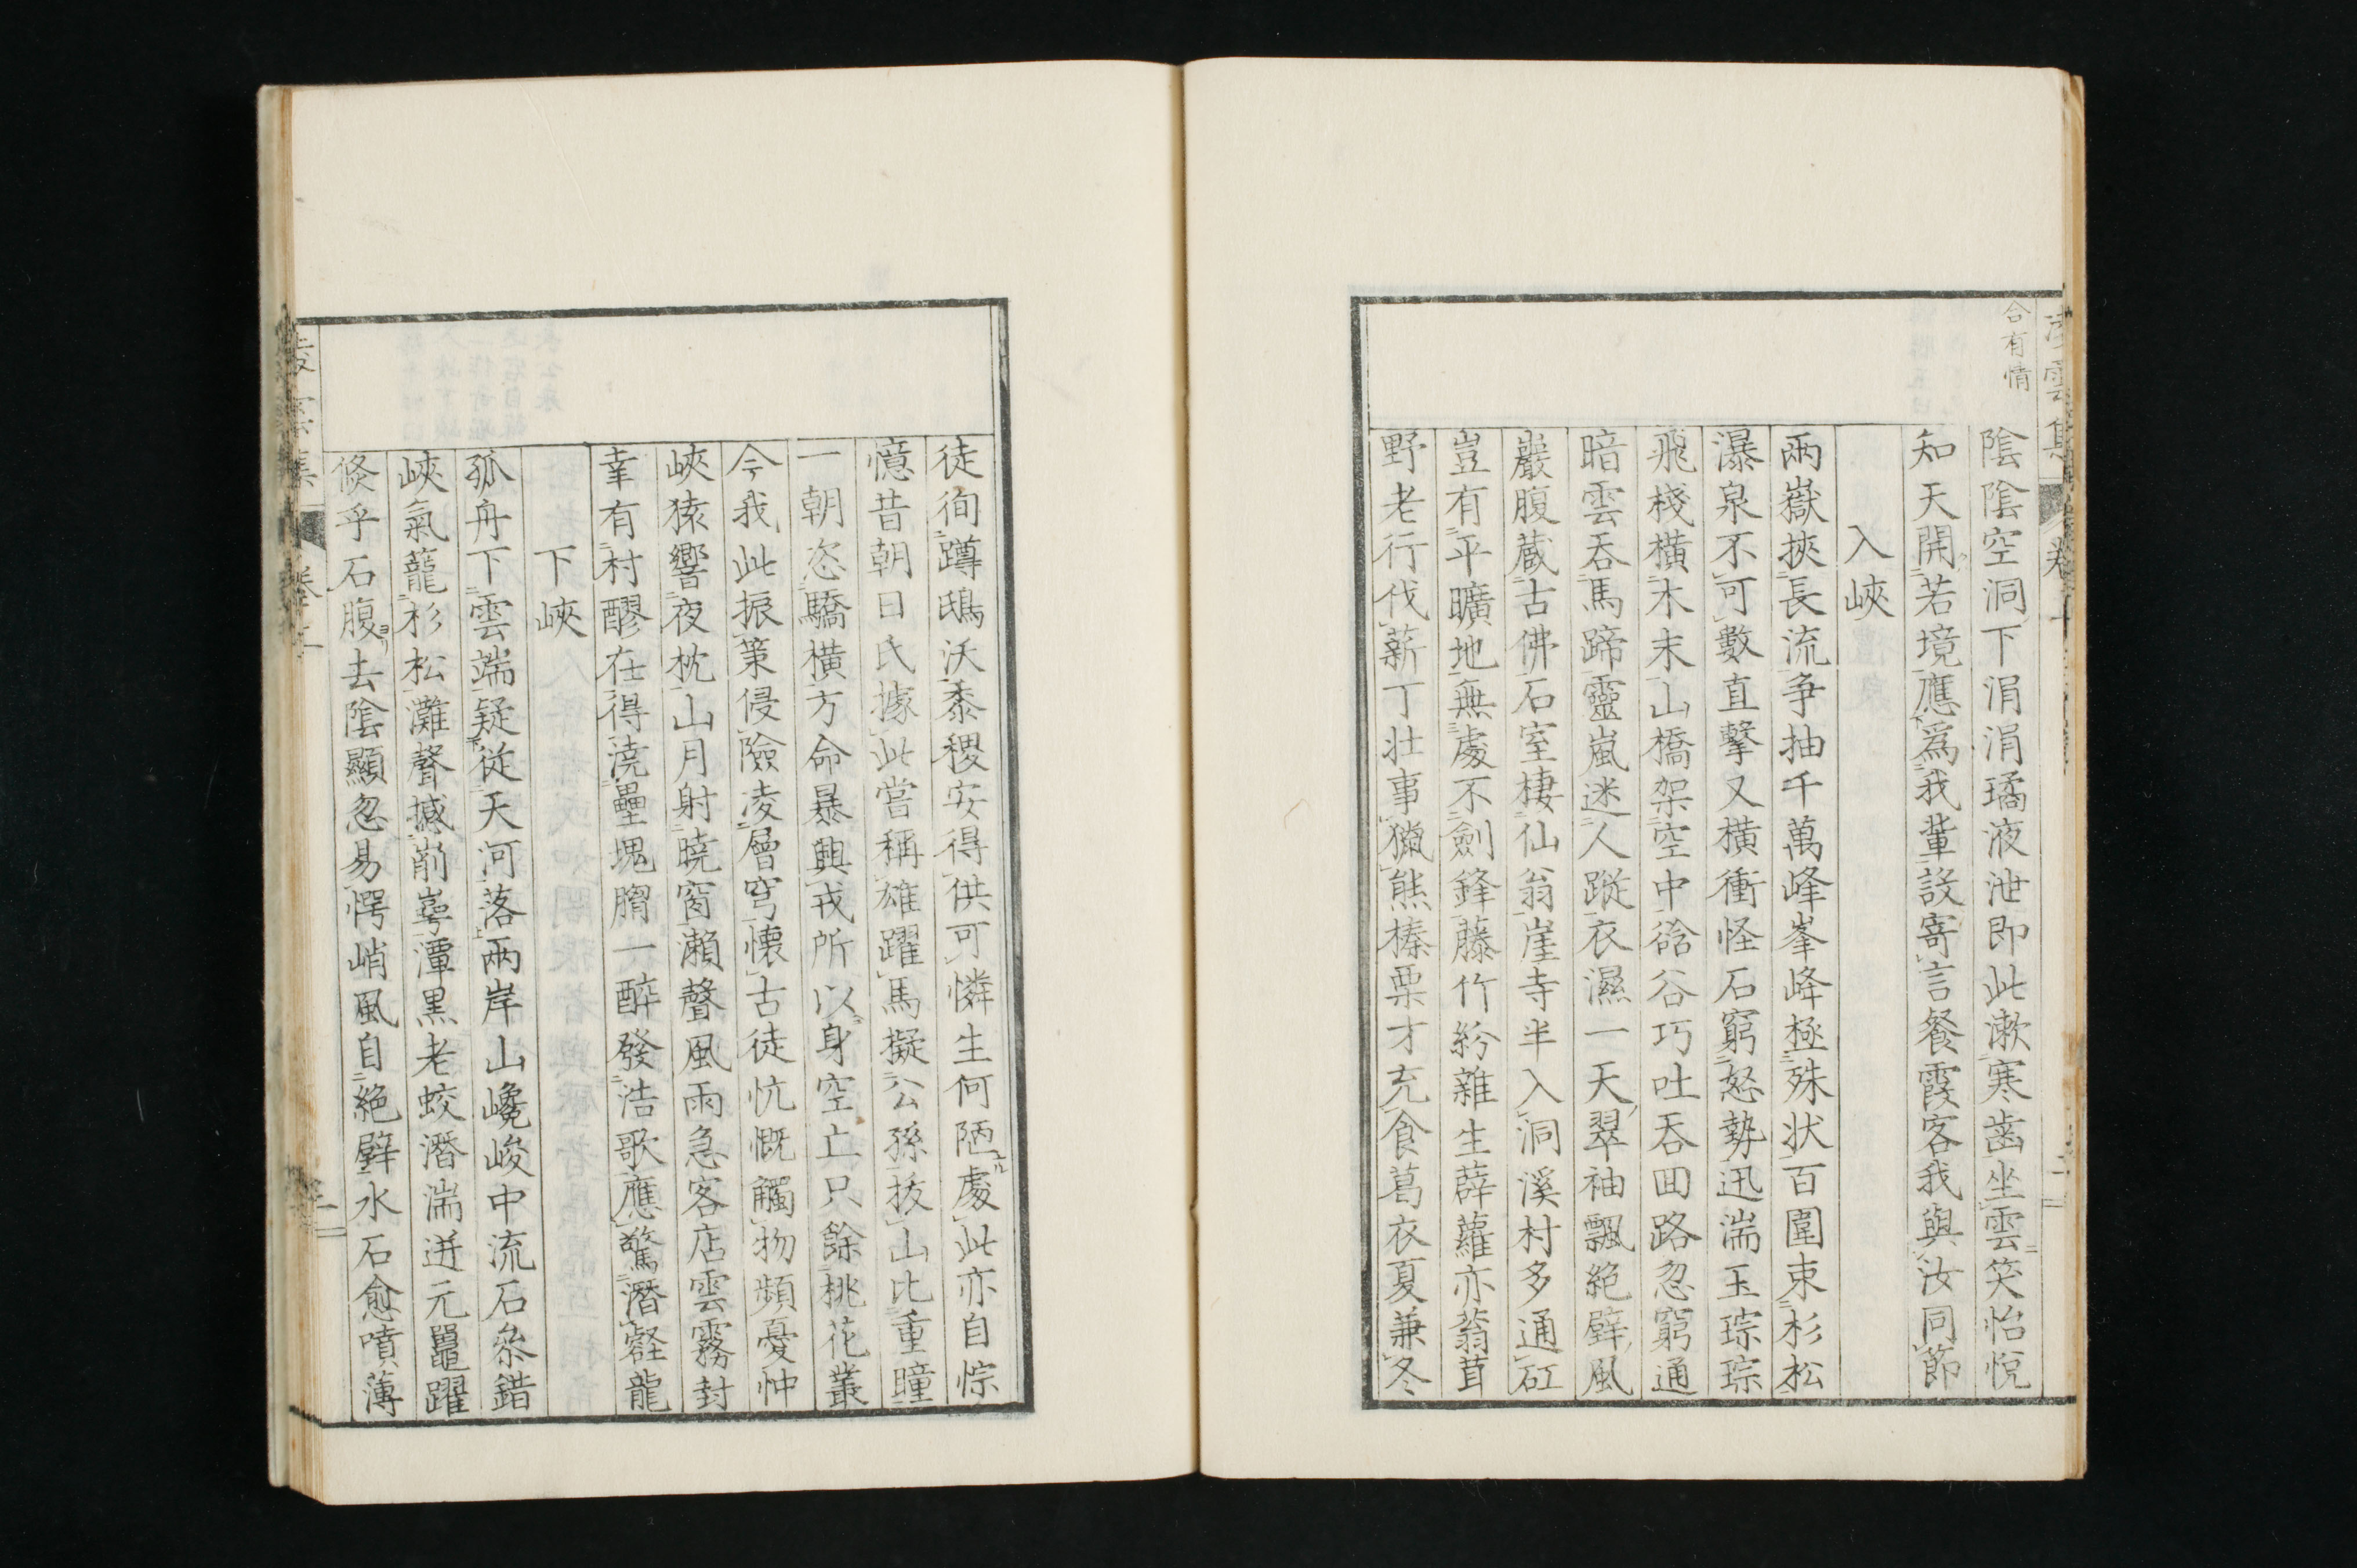 合有情
陰陰空洞下涓涓璚液泄即此漱寒齒坐雲笑怡悅
知天開若境應爲我輩設寄言餐霞客我與汝同節
入峽
兩嶽挾長流爭抽千萬峰峯峰極殊狀百圍束杉松
瀑泉不可數直擊又橫衝怪石窮怒勢迅湍玉琮琮
飛棧橫木末山橋架空中谽谷巧吐吞田路忽窮通
暗雲吞馬蹄靈嵐迷人蹤衣濕一天翠袖飄絕壁風
巖腹藏古佛石室棲仙翁崖寺半入洞溪村多通矼
豈有平曠地無處不劍鋒藤竹紛雜生薜蘿亦蓊茸
野老行伐薪丁壯事獵熊榛栗才充食葛衣夏兼冬
徒徇蹲鴟沃黍稷安得供可憐生何陋處此亦自悰
憶昔朝日氏據此嘗稱雄躍馬擬公孫拔山比重瞳
一朝恣驕橫方命暴興戎所以身空亡只餘桃花叢
今我此振策侵險凌層穹懷古徒忼慨觸物頻憂忡
峽猿響夜枕山月射曉窗瀨聲風雨急客店雲霧封
幸有村醪在得澆壘塊胸一醉發浩歌應驚潛壑龍
下峽
孤舟下雲端疑從天河落兩岸山巉峻中流石參錯
峽氣籠杉松灘聲撼崱㟧潭黑老蛟潛湍迸元鼉躍
倏乎石腹去陰顯忽易愕峭風自絕壁水石愈噴薄